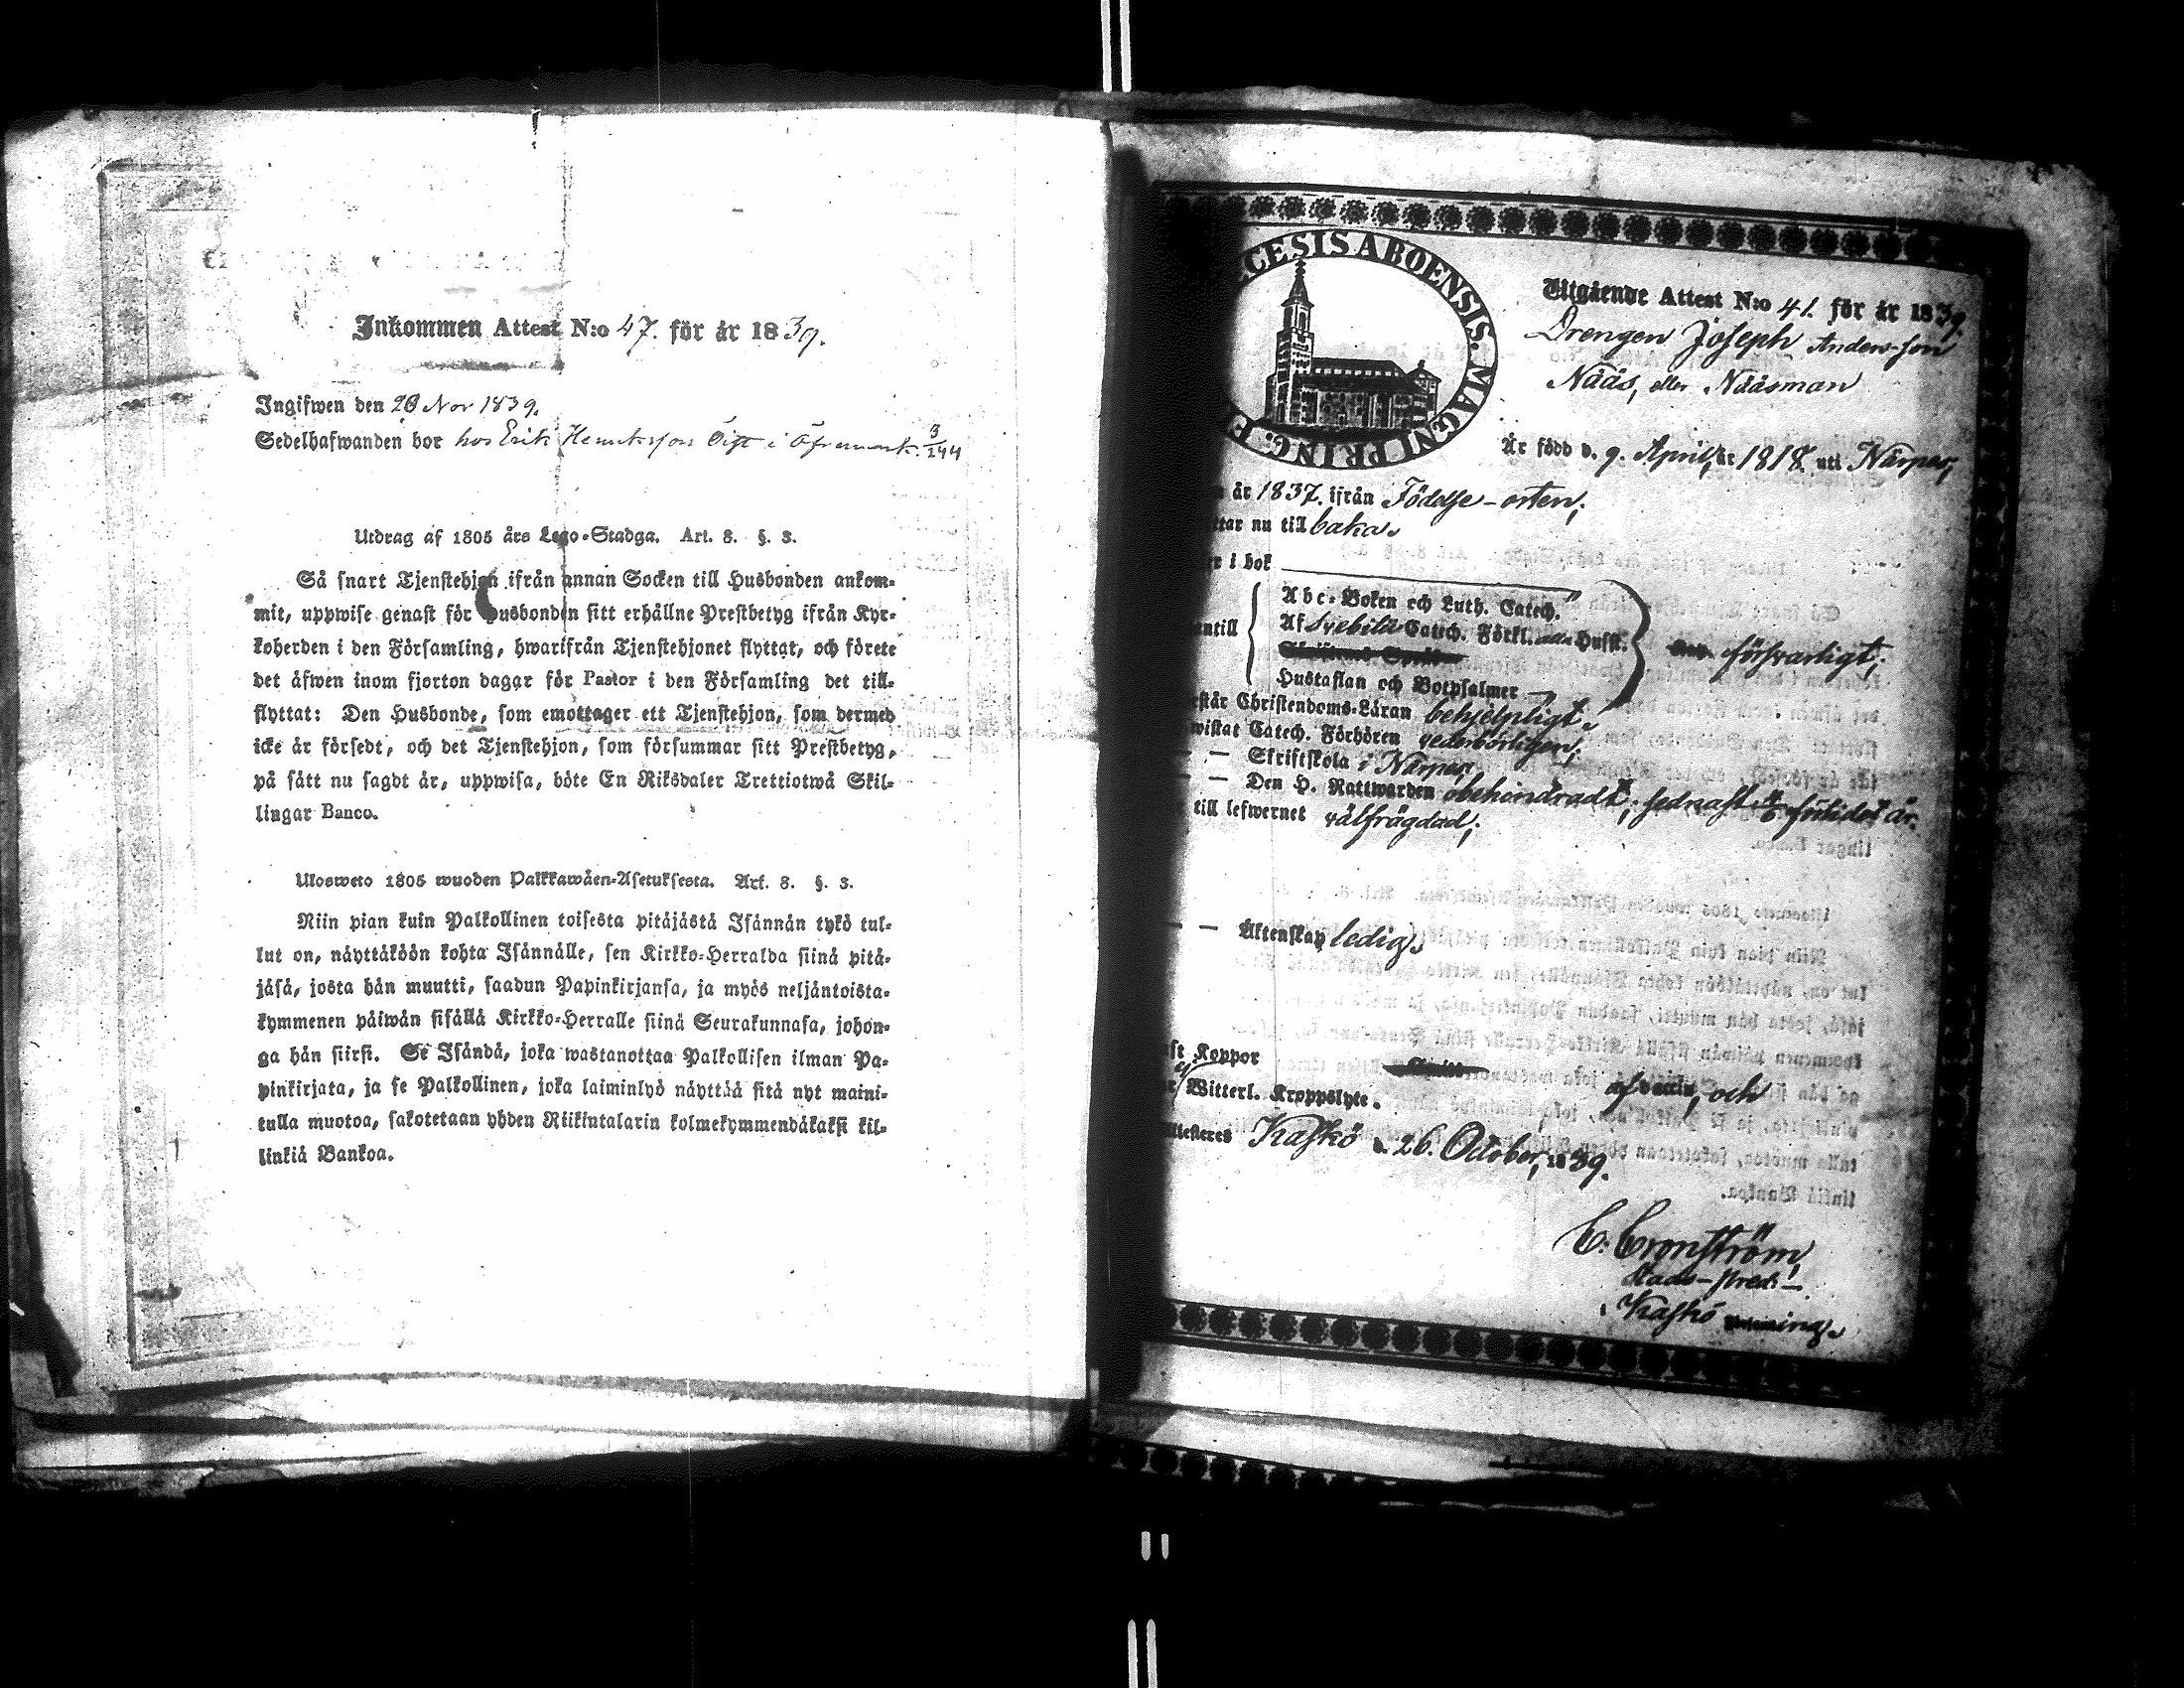 Inkommen Attest N:o 47. för år 1839.
Ingifwen den 20 Nov 1839.
Sedelhafwanden bor hos Erik Henriksson i Öfvermark. 3/244
Utdrag af 1805 års Lego-Stadga. Art. 8. §. 3.
Så snart Tjenstehjon ifrån annan Socken till Husbonden ankom-
mit, uppwise genast för Husbonden sitt erhållne Prestbetyg ifrån Kyr-
koherden i den Församling, hwarifrån Tjenstehjonet flyttat, och förete
det äfwen inom fjorton dagar för Pastor i den Församling det till-
flyttat: Den Husbonde, som emottager ett Tjenstehjon, som dermed
icke är försedt, och det Tjenstehjon, som försummar sitt Prestbetyg,
på sätt nu sagdt är, uppwisa, böte En Riksdaler Trettiotwå Skil-
lingar Banco.
Uloswето 1805 wuoden Palkkawäen-Asetuksesta. Art. 8. §. 3.
Niin pian kuin Palkollinen toisesta pitäjästä Isännän tykö tul-
lut on, näyttäköön kohta Isännälle, sen Kirkko-Herralda siinä pitä-
jäsä, josta hän muutti, saadun Papinkirjansa, ja myös neljäntoista-
kymmenen päiwän sisällä Kirkko-Herralle siinä Seurakunnasa, johon-
ga hän siirsi. Se Isändä, joka wastanottaa Palkollisen ilman Pa-
pinkirjata, ja se Palkollinen, joka laiminlyö näyttää sitä nyt maini-
tulla muotoa, sakotetaan yhden Riikintalarin kolmekymmendäkaksi kil-
linkiä Bankoa.
CESIS ABOENSIS. MAGNI PRINC. F
Utgående Attest N:o 41. för år 1839.
Drengen Joseph Andersson
Nääs, eller Nääsman
Är född d. 9. April, år 1818. uti Närpes,
år 1837. ifrån Födelse-orten;
ttar nu till baka.
r i bok
Abc-Boken och Luth. Catech.
antill Af Svebilii Catech. Förkl. Husst. försvarligt;
Hustaflan och Botpsalmer
står Christendoms-Läran behjelpligt.
wistat Catech. Förhören vederbörligen;
— Skriftskola i Närpes,
— Den H. Nattwarden obehindradt; sednast förlidet år.
till lefwernet välfrägdad;
— — Äktenskap ledig.
Koppor af vaccin, och
Witterl. Kroppslyte.
ttesteres Kaskö d. 26. October, 1839.
C: Cronström,
Stads-pred:
Kaskö